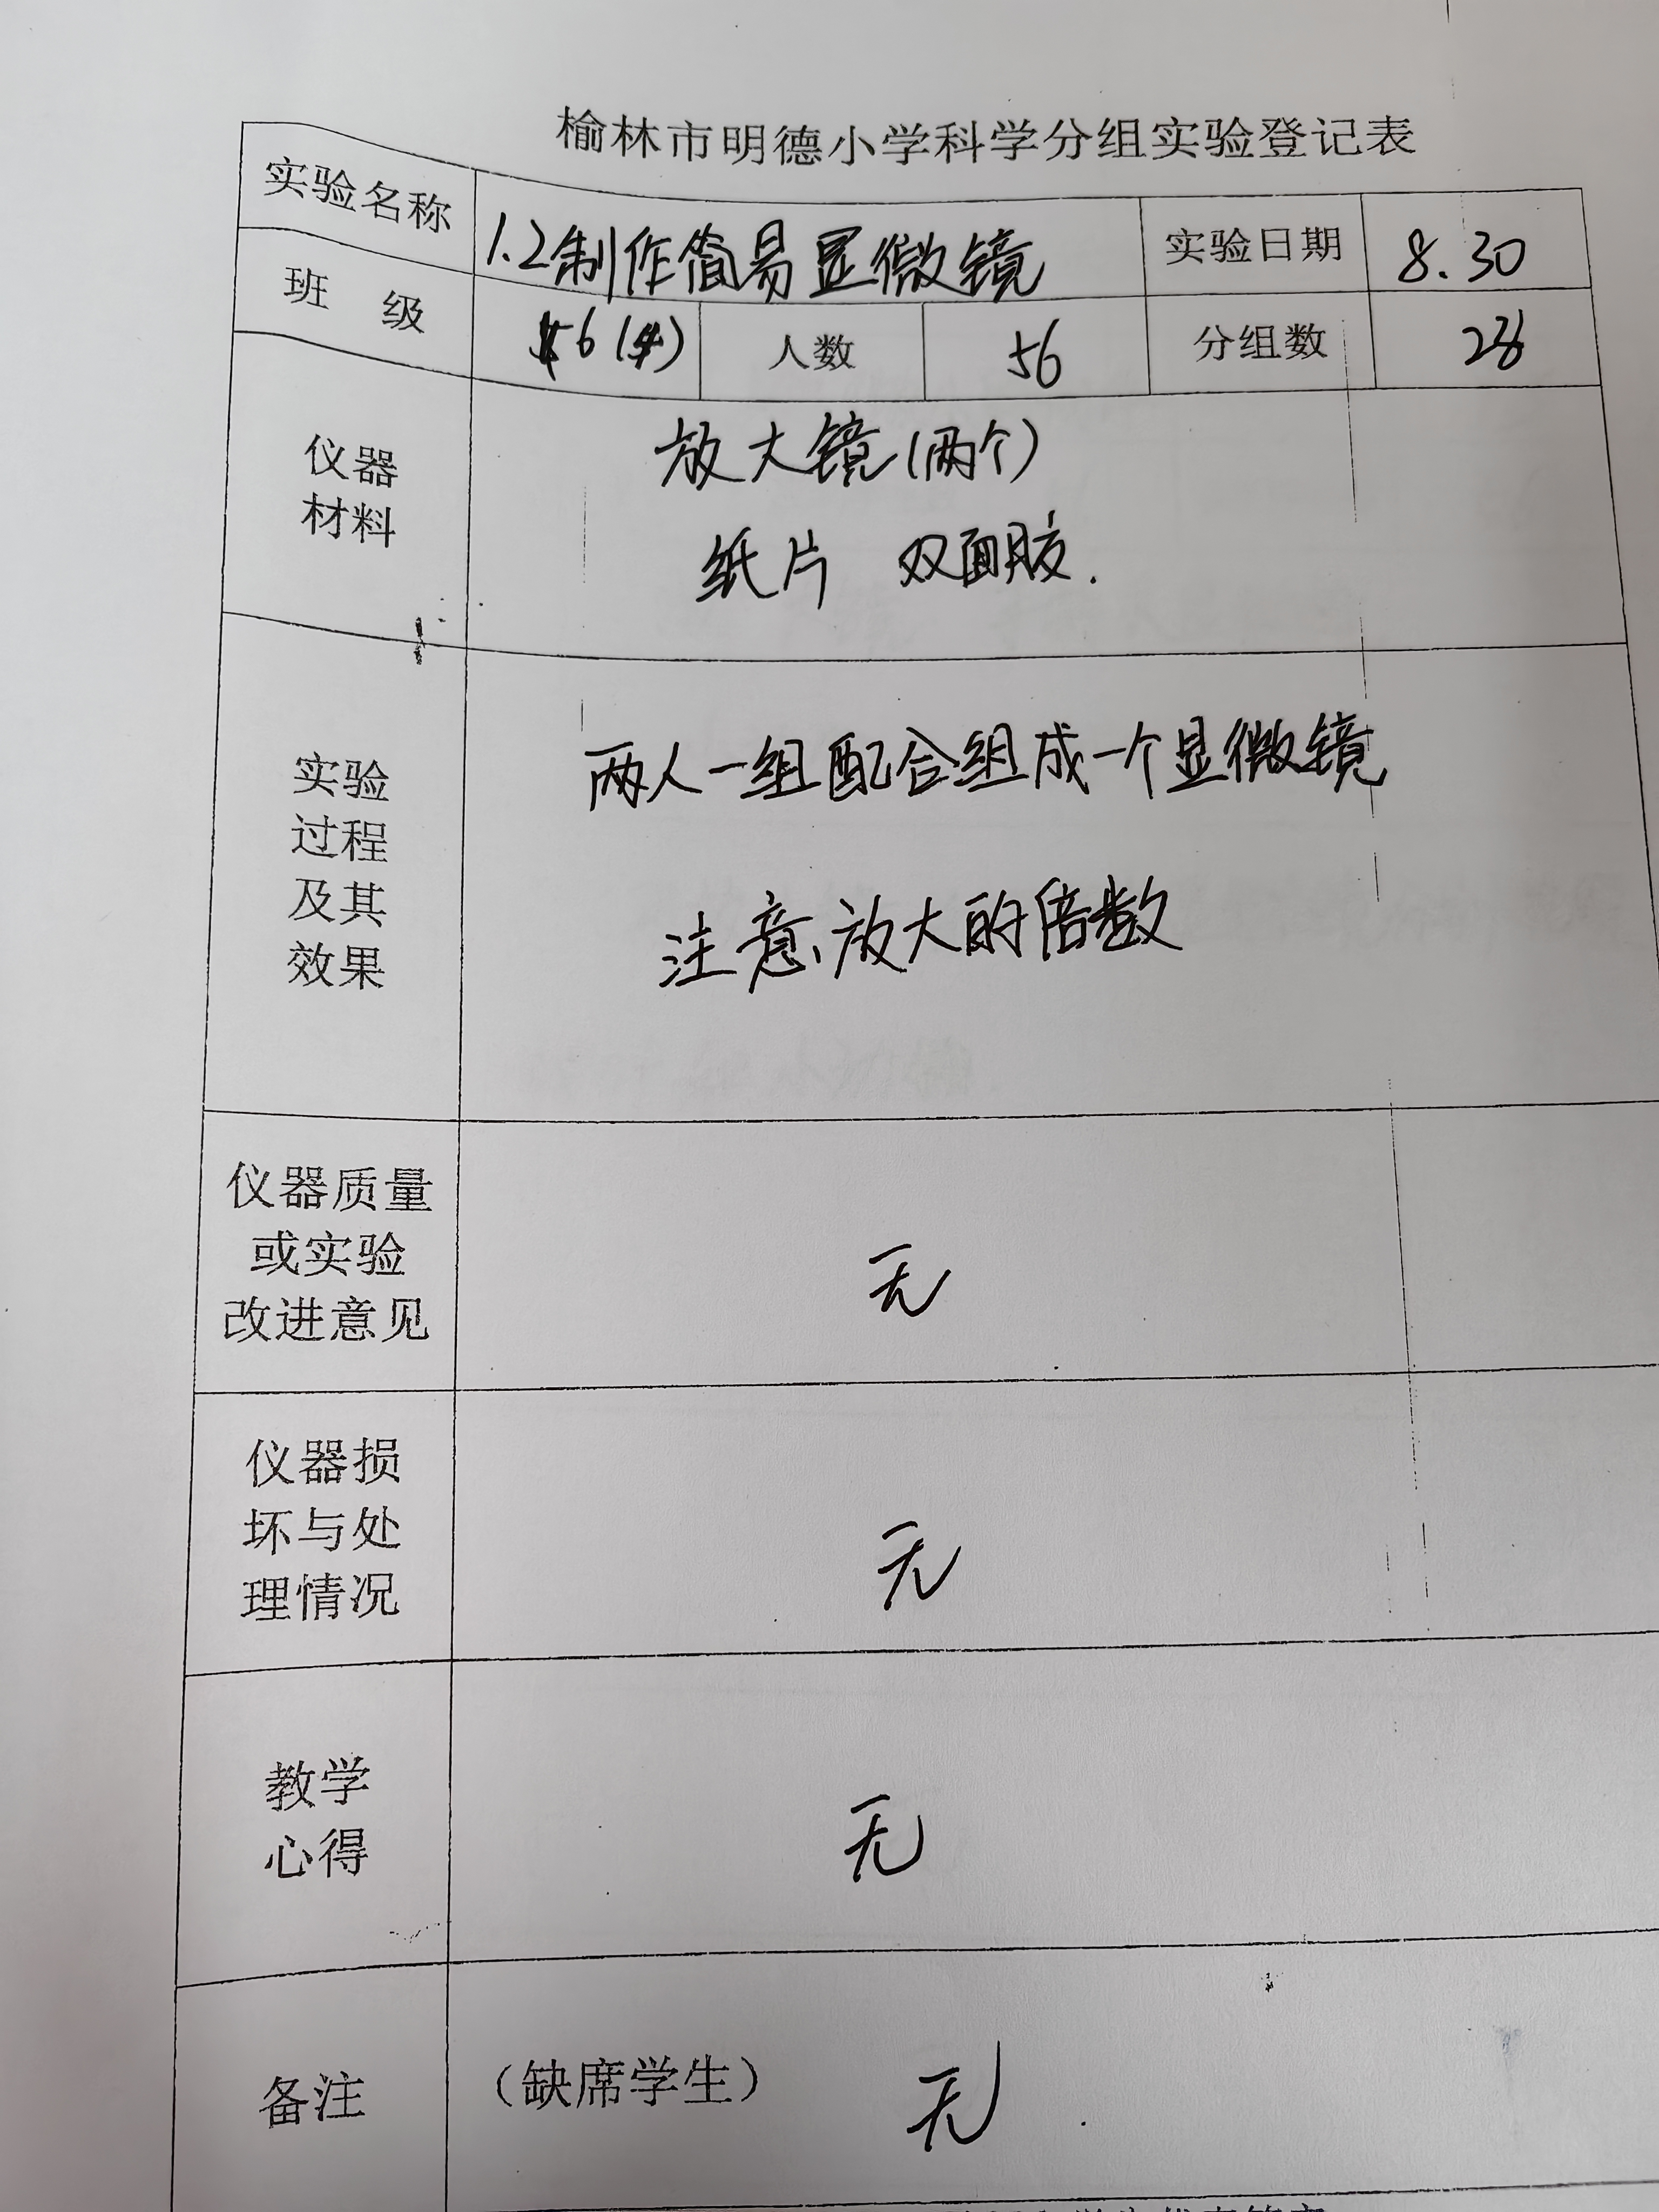 榆林市明德小学科学分组实验登记表
实验名称 1.2制作简易显微镜 实验日期 8.30
班级 6(4) 人数 56 分组数 28
仪器
材料
放大镜(两个)
纸片 双面胶.
实验
过程
及其
效果
两人一组配合组成一个显微镜
注意、放大的倍数
仪器质量
或实验
改进意见
无
仪器损
坏与处
理情况
无
教学
心得
无
备注 (缺席学生) 无